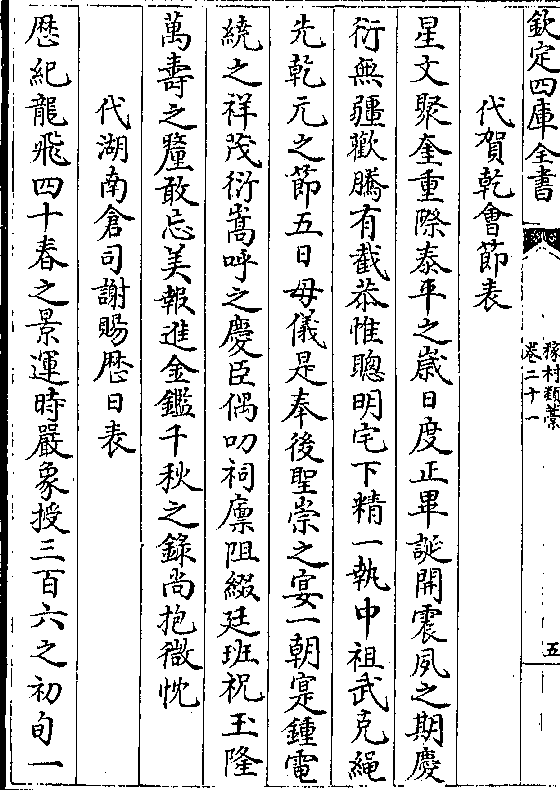 欽定四庫全書
稼村類藁
卷二十一
五
代賀乾會節表
星文聚奎重際泰平之歳日度正畢誕開震夙之期慶
衍無疆歡騰有截恭惟聰明宅下精一執中祖武克繩
先乾元之節五日母儀是奉後聖崇之宴一朝寔鍾電
繞之祥茂衍嵩呼之慶臣偶叨祠廪阻綴廷班祝玉隆
萬壽之釐敢忘美報進金鑑千秋之錄尚抱微忱
代湖南倉司謝賜歴日表
歴紀龍飛四十春之景運時嚴象授三百六之初旬一